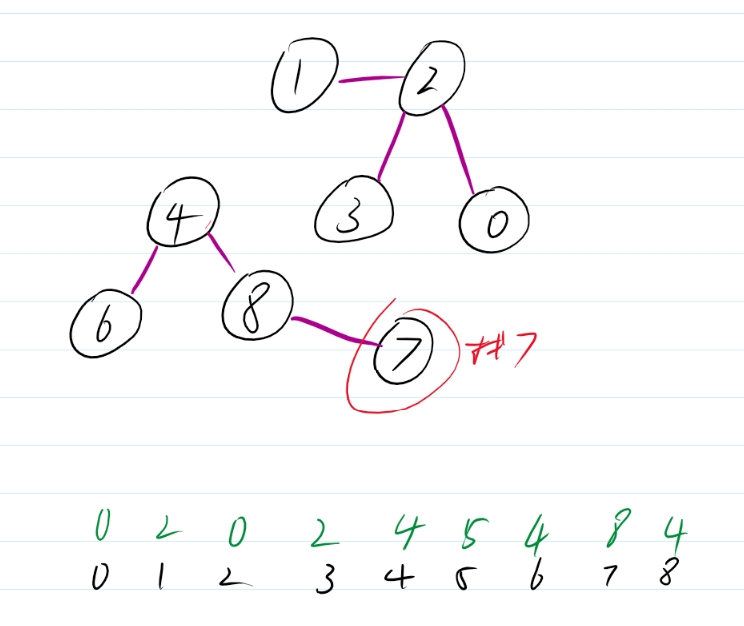 1 2
4 3 0
6 8 7 #7
0 2 0 2 4 5 4 8 4
0 1 2 3 4 5 6 7 8